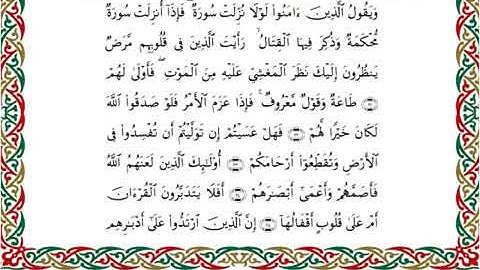 وَيَقُولُ ٱلَّذِينَ ءَامَنُوا۟ لَوْلَا نُزِّلَتْ سُورَةٌ ۖ فَإِذَآ أُنزِلَتْ سُورَةٌ
مُّحْكَمَةٌ وَذُكِرَ فِيهَا ٱلْقِتَالُ ۙ رَأَيْتَ ٱلَّذِينَ فِى قُلُوبِهِم مَّرَضٌ
يَنظُرُونَ إِلَيْكَ نَظَرَ ٱلْمَغْشِىِّ عَلَيْهِ مِنَ ٱلْمَوْتِ ۖ فَأَوْلَىٰ لَهُمْ
۝٢٠ طَاعَةٌ وَقَوْلٌ مَّعْرُوفٌ ۚ فَإِذَا عَزَمَ ٱلْأَمْرُ فَلَوْ صَدَقُوا۟ ٱللَّهَ
لَكَانَ خَيْرًا لَّهُمْ ۝٢١ فَهَلْ عَسَيْتُمْ إِن تَوَلَّيْتُمْ أَن تُفْسِدُوا۟ فِى
ٱلْأَرْضِ وَتُقَطِّعُوٓا۟ أَرْحَامَكُمْ ۝٢٢ أُو۟لَـٰٓئِكَ ٱلَّذِينَ لَعَنَهُمُ ٱللَّهُ
فَأَصَمَّهُمْ وَأَعْمَىٰٓ أَبْصَـٰرَهُمْ ۝٢٣ أَفَلَا يَتَدَبَّرُونَ ٱلْقُرْءَانَ
أَمْ عَلَىٰ قُلُوبٍ أَقْفَالُهَآ ۝٢٤ إِنَّ ٱلَّذِينَ ٱرْتَدُّوا۟ عَلَىٰٓ أَدْبَـٰرِهِم